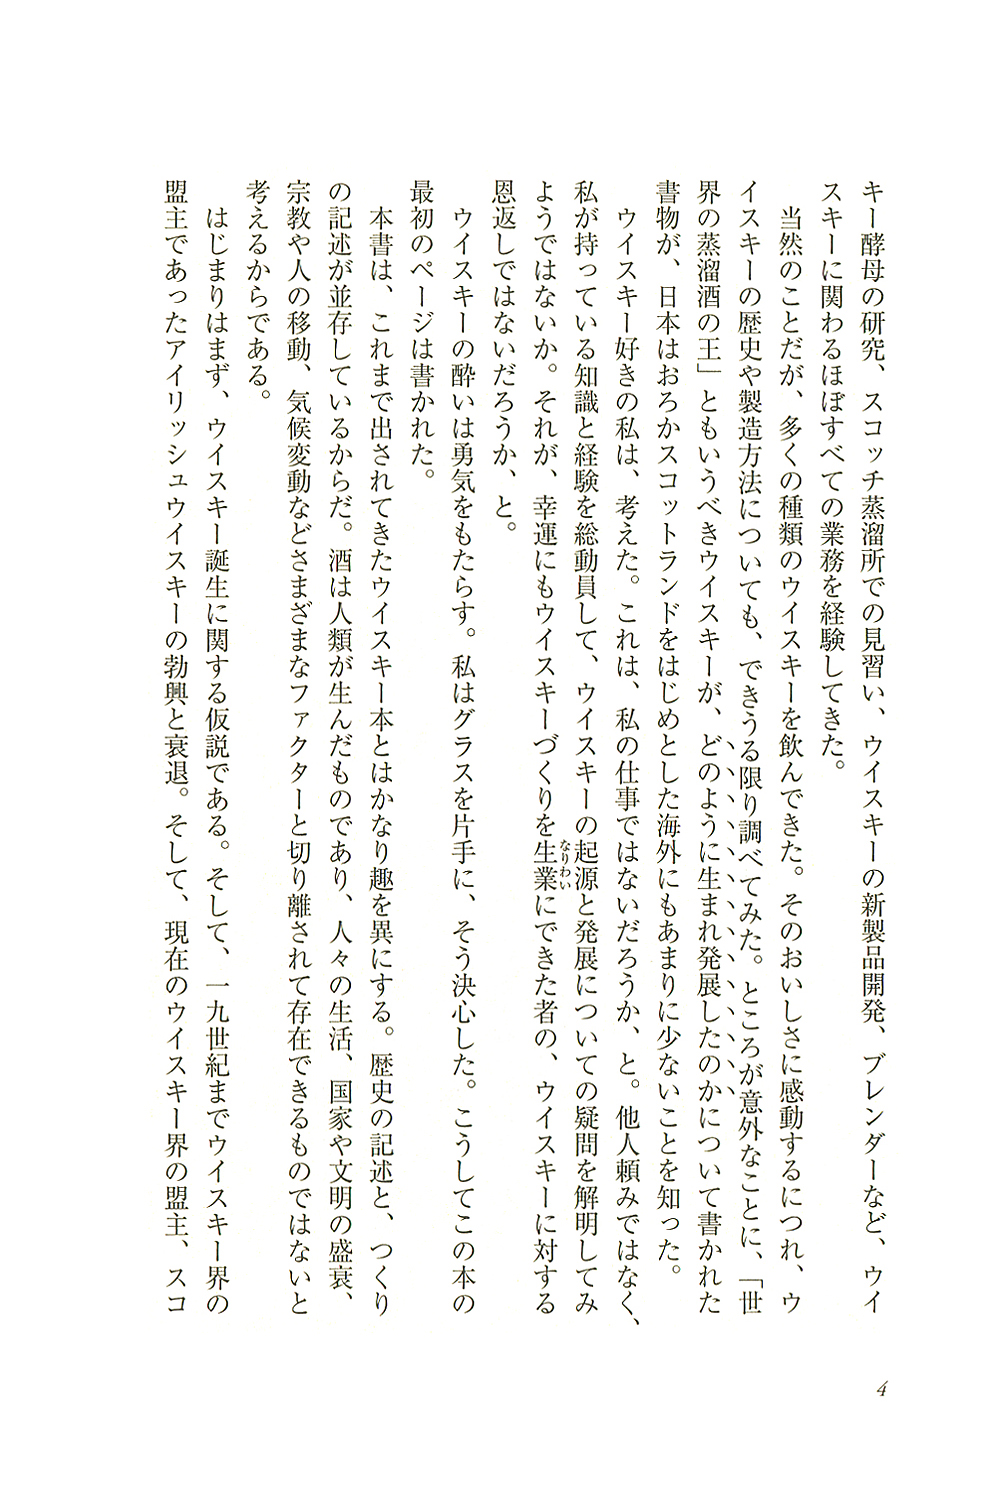 キー酵母の研究、スコッチ蒸溜所での見習い、ウイスキーの新製品開発、ブレンダーなど、ウイ
スキーに関わるほぼすべての業務を経験してきた。
　当然のことだが、多くの種類のウイスキーを飲んできた。そのおいしさに感動するにつれ、ウ
イスキーの歴史や製造方法についても、できうる限り調べてみた。ところが意外なことに、「世
界の蒸溜酒の王」ともいうべきウイスキーが、どのように生まれ発展したのかについて書かれた
書物が、日本はおろかスコットランドをはじめとした海外にもあまりに少ないことを知った。
　ウイスキー好きの私は、考えた。これは、私の仕事ではないだろうか、と。他人頼みではなく、
私が持っている知識と経験を総動員して、ウイスキーの起源と発展についての疑問を解明してみ
ようではないか。それが、幸運にもウイスキーづくりを生業なりわいにできた者の、ウイスキーに対する
恩返しではないだろうか、と。
　ウイスキーの酔いは勇気をもたらす。私はグラスを片手に、そう決心した。こうしてこの本の
最初のページは書かれた。
　本書は、これまで出されてきたウイスキー本とはかなり趣を異にする。歴史の記述と、つくり
の記述が並存しているからだ。酒は人類が生んだものであり、人々の生活、国家や文明の盛衰、
宗教や人の移動、気候変動などさまざまなファクターと切り離されて存在できるものではないと
考えるからである。
　はじまりはまず、ウイスキー誕生に関する仮説である。そして、一九世紀までウイスキー界の
盟主であったアイリッシュウイスキーの勃興と衰退。そして、現在のウイスキー界の盟主、スコ
4